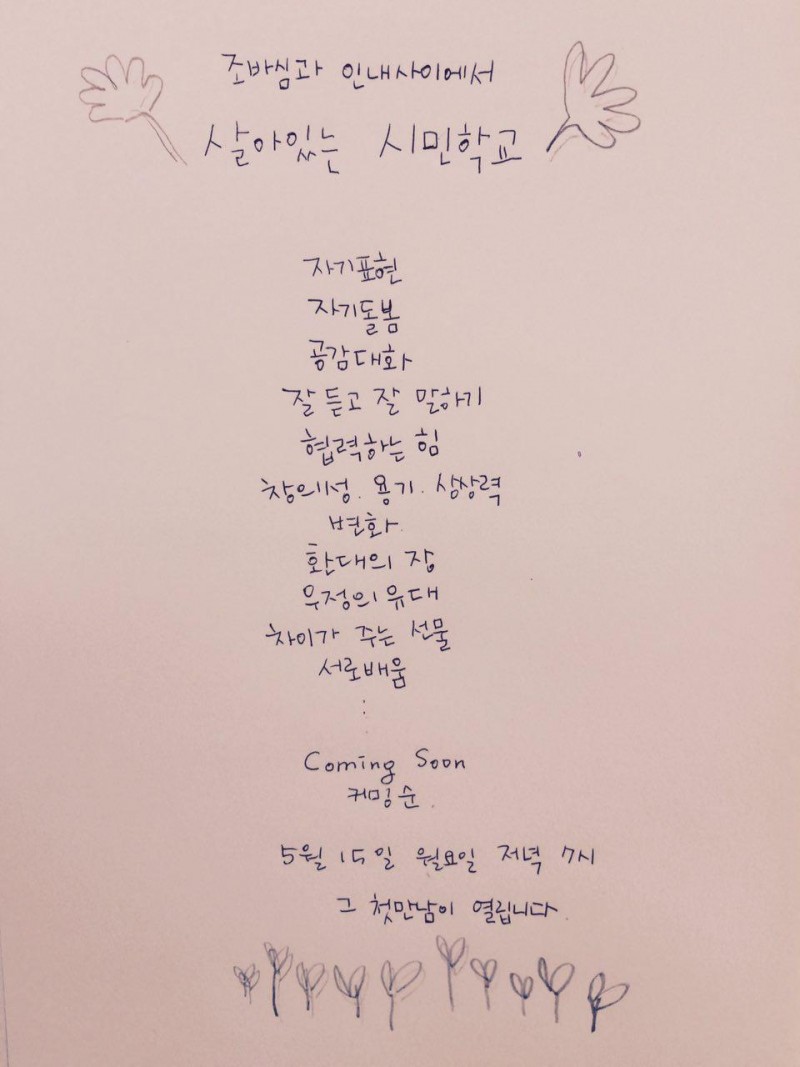 조바심과 인내사이에서
살아있는 시민학교
자기표현
자기돌봄
공감대화
잘 듣고 잘 말하기
협력하는 힘
창의성. 용기. 상상력
변화.
환대의 장
우정의 유대
차이가 주는 선물
서로배움
:
Coming Soon
커밍순.
5월 15일 월요일 저녁 7시
그 첫만남이 열립니다.